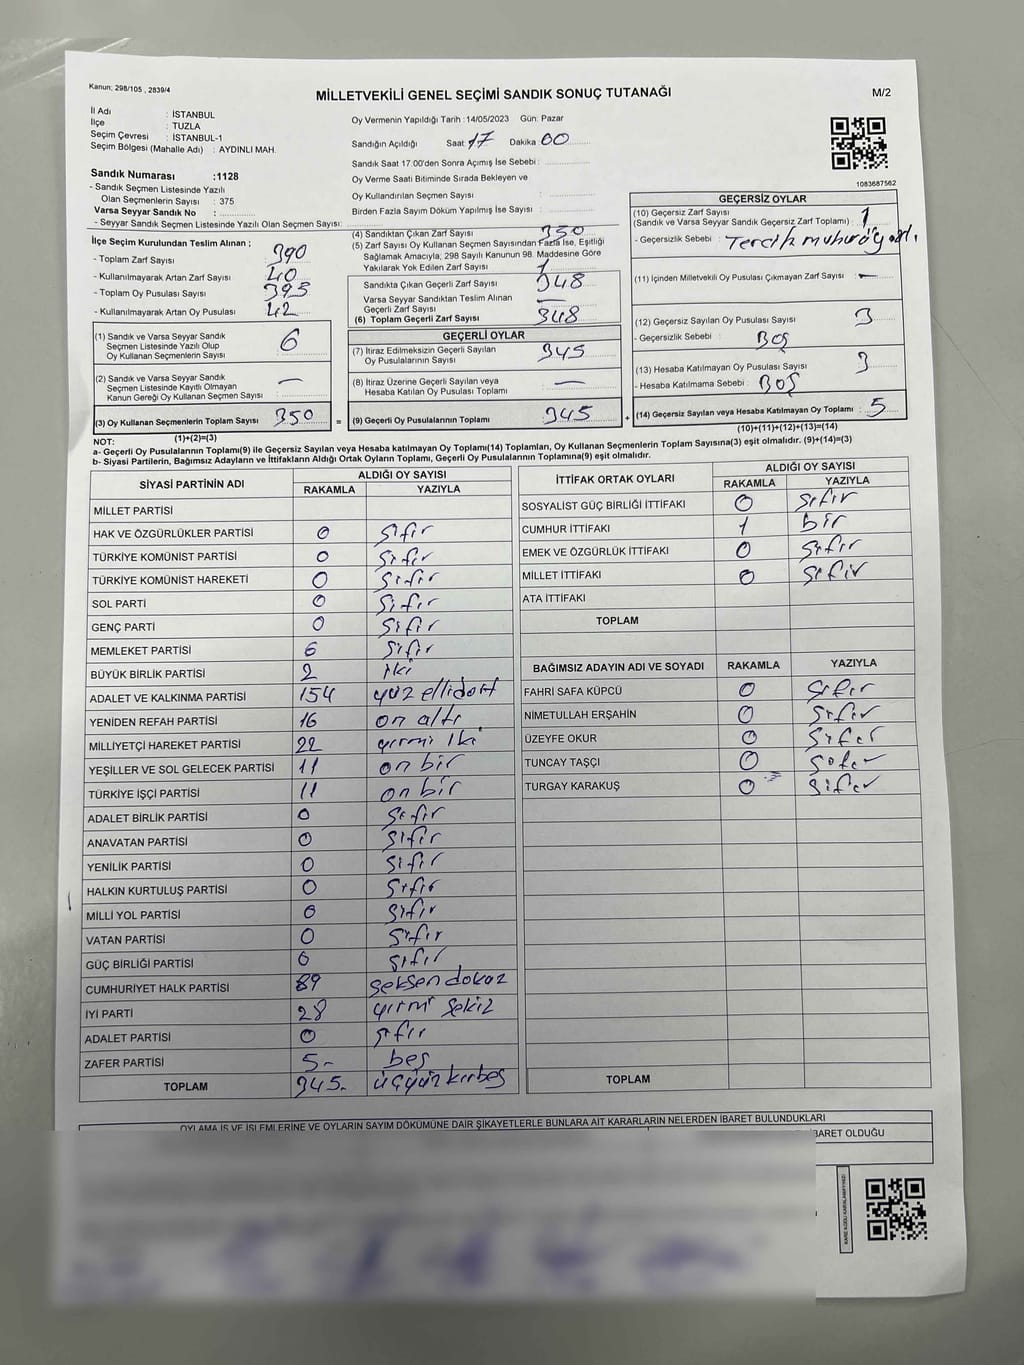 Kanun: 298/105 , 2839/4
MİLLETVEKİLİ GENEL SEÇİMİ SANDIK SONUÇ TUTANAĞI
M/2
İl Adı : İSTANBUL
İlçe : TUZLA
Seçim Çevresi : İSTANBUL-1
Seçim Bölgesi (Mahalle Adı) : AYDINLI MAH.
Sandık Numarası :1128
- Sandık Seçmen Listesinde Yazılı
Olan Seçmenlerin Sayısı : 375
Varsa Seyyar Sandık No :
- Seyyar Sandık Seçmen Listesinde Yazılı Olan Seçmen Sayısı:
Oy Vermenin Yapıldığı Tarih :14/05/2023 Gün: Pazar
Sandığın Açıldığı Saat 17 Dakika 00
Sandık Saat 17.00'den Sonra Açımış İse Sebebi :
Oy Verme Saati Bitiminde Sırada Bekleyen ve
Oy Kullandırılan Seçmen Sayısı :
Birden Fazla Sayım Döküm Yapılmış İse Sayısı :
1083687562
İlçe Seçim Kurulundan Teslim Alınan ;
- Toplam Zarf Sayısı : 390
- Kullanılmayarak Artan Zarf Sayısı : 40
- Toplam Oy Pusulası Sayısı : 393
- Kullanılmayarak Artan Oy Pusulası : 42
(1) Sandık ve Varsa Seyyar Sandık
Seçmen Listesinde Yazılı Olup
Oy Kullanan Seçmenlerin Sayısı : 6
(2) Sandık ve Varsa Seyyar Sandık
Seçmen Listesinde Kayıtlı Olmayan
Kanun Gereği Oy Kullanan Seçmen Sayısı : —
(3) Oy Kullanan Seçmenlerin Toplam Sayısı : 350
(1)+(2)=(3)
(4) Sandıktan Çıkan Zarf Sayısı : 350
(5) Zarf Sayısı Oy Kullanan Seçmen Sayısından Fazla İse, Eşitliği
Sağlamak Amacıyla; 298 Sayılı Kanunun 98. Maddesine Göre
Yakılarak Yok Edilen Zarf Sayısı : 1
Sandıkta Çıkan Geçerli Zarf Sayısı : 348
Varsa Seyyar Sandıktan Teslim Alınan
Geçerli Zarf Sayısı : —
(6) Toplam Geçerli Zarf Sayısı : 348
GEÇERLİ OYLAR
(7) İtiraz Edilmeksizin Geçerli Sayılan
Oy Pusulalarının Sayısı : 345
(8) İtiraz Üzerine Geçerli Sayılan veya
Hesaba Katılan Oy Pusulası Toplamı : —
= (9) Geçerli Oy Pusulalarının Toplamı : 345
GEÇERSİZ OYLAR
(10) Geçersiz Zarf Sayısı
(Sandık ve Varsa Seyyar Sandık Geçersiz Zarf Toplamı) : 1
- Geçersizlik Sebebi : Tercih
(11) İçinden Milletvekili Oy Pusulası Çıkmayan Zarf Sayısı : —
(12) Geçersiz Sayılan Oy Pusulası Sayısı : 3
- Geçersizlik Sebebi : BOŞ
(13) Hesaba Katılmayan Oy Pusulası Sayısı : 3
- Hesaba Katılmama Sebebi : BOŞ
+ (14) Geçersiz Sayılan veya Hesaba Katılmayan Oy Toplamı : 5
(10)+(11)+(12)+(13)=(14)
NOT:
a- Geçerli Oy Pusulalarının Toplamı(9) ile Geçersiz Sayılan veya Hesaba katılmayan Oy Toplamı(14) Toplamları, Oy Kullanan Seçmenlerin Toplam Sayısına(3) eşit olmalıdır. (9)+(14)=(3)
b- Siyasi Partilerin, Bağımsız Adayların ve İttifakların Aldığı Ortak Oyların Toplamı, Geçerli Oy Pusulalarının Toplamına(9) eşit olmalıdır.
SİYASİ PARTİNİN ADI ALDIĞI OY SAYISI
RAKAMLA YAZIYLA
MİLLET PARTİSİ
HAK VE ÖZGÜRLÜKLER PARTİSİ 0 sıfır
TÜRKİYE KOMÜNİST PARTİSİ 0 sıfır
TÜRKİYE KOMÜNİST HAREKETİ 0 sıfır
SOL PARTİ 0 sıfır
GENÇ PARTİ 0 sıfır
MEMLEKET PARTİSİ 6 sıfır
BÜYÜK BİRLİK PARTİSİ 2 iki
ADALET VE KALKINMA PARTİSİ 154 yüz ellidört
YENİDEN REFAH PARTİSİ 16 on altı
MİLLİYETÇİ HAREKET PARTİSİ 22 yirmi iki
YEŞİLLER VE SOL GELECEK PARTİSİ 11 on bir
TÜRKİYE İŞÇİ PARTİSİ 11 on bir
ADALET BİRLİK PARTİSİ 0 sıfır
ANAVATAN PARTİSİ 0 sıfır
YENİLİK PARTİSİ 0 sıfır
HALKIN KURTULUŞ PARTİSİ 0 sıfır
MİLLİ YOL PARTİSİ 0 sıfır
VATAN PARTİSİ 0 sıfır
GÜÇ BİRLİĞİ PARTİSİ 0 sıfır
CUMHURİYET HALK PARTİSİ 89 seksen dokuz
İYİ PARTİ 28 yirmi sekiz
ADALET PARTİSİ 0 sıfır
ZAFER PARTİSİ 5- beş
TOPLAM 345- üçyüz kırbeş
İTTİFAK ORTAK OYLARI ALDIĞI OY SAYISI
RAKAMLA YAZIYLA
SOSYALİST GÜÇ BİRLİĞİ İTTİFAKI 0 sıfır
CUMHUR İTTİFAKI 1 bir
EMEK VE ÖZGÜRLÜK İTTİFAKI 0 sıfır
MİLLET İTTİFAKI 0 sıfır
ATA İTTİFAKI
TOPLAM
BAĞIMSIZ ADAYIN ADI VE SOYADI RAKAMLA YAZIYLA
FAHRİ SAFA KÜPCÜ 0 sıfır
NİMETULLAH ERŞAHİN 0 sıfır
ÜZEYFE OKUR 0 sıfır
TUNCAY TAŞÇI 0 sıfır
TURGAY KARAKUŞ 0 sıfır
TOPLAM
OYLAMA İŞ VE İŞLEMLERİNE VE OYLARIN SAYIM DÖKÜMÜNE DAİR ŞİKAYETLERLE BUNLARA AİT KARARLARIN NELERDEN İBARET BULUNDUKLARI
İBARET OLDUĞU